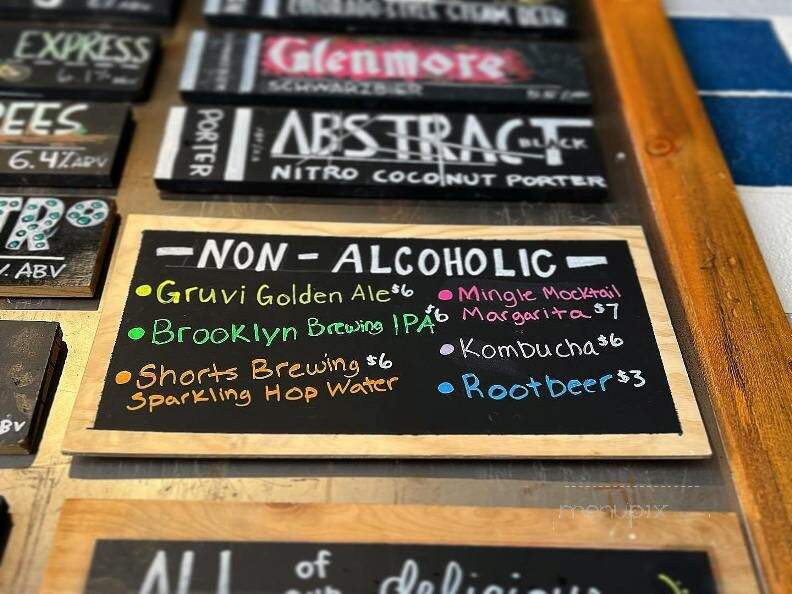 COLORADO-STYLE CREAM BEER
EXPRESS
6.1%
Glenmore
SCHWARZBIER
EES
6.4% ABV
PORTER
ABSTRACT
BLACK
NITRO COCONUT PORTER
TRO
% ABV
NON - ALCOHOLIC
Gruvi Golden Ale $6
Brooklyn Brewing IPA $6
Shorts Brewing $6
Sparkling Hop Water
Mingle Mocktail
Margarita $7
Kombucha $6
Rootbeer $3
BV
menupix
ALL of our delicious